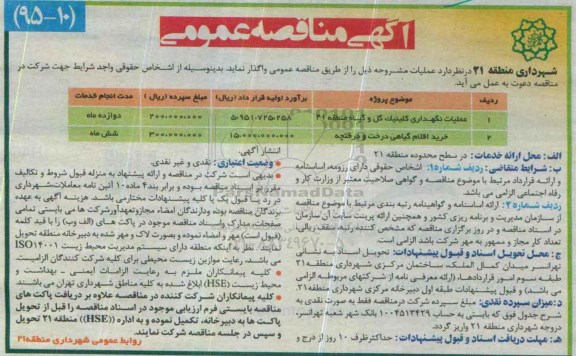 (۹۵-۱۰)
آگهی مناقصه عمومی
شهرداری منطقه ۲۱ درنظردارد عملیات مشروحه ذیل را از طریق مناقصه عمومی واگذار نماید. بدینوسیله از اشخاص حقوقی واجد شرایط جهت شرکت در
مناقصه دعوت به عمل می آید.
ردیف موضوع پروژه برآورد اولیه قرار داد (ریال) مبلغ سپرده (ریال) مدت انجام خدمات
۱ عملیات نگهداری کلینیک گل و گیاه منطقه ۲۱ ۵۰۹۵۱۰۷۲۵۰۲۵۸ ۲۰۰۰۰۰۰۰۰۰ دوازده ماه
۲ خرید اقلام گیاهی درخت و درختچه ۱۵۰۰۰۰۰۰۰۰۰۰ ۳۰۰۰۰۰۰۰۰۰ شش ماه
الف: محل ارائه خدمات: در سطح محدوده منطقه ۲۱
ب: شرایط متقاضی: ردیف شماره۱: اشخاص حقوقی دارای رزومه، اساسنامه
و ارائه قرارداد مرتبط با موضوع مناقصه و گواهی صلاحیت معتبر از وزارت کار و
رفاه اجتماعی الزامی می باشد.
ردیف شماره ۲: ارائه اساسنامه و گواهینامه رتبه بندی مرتبط با موضوع مناقصه
از سازمان مدیریت و برنامه ریزی کشور و همچنین ارائه پرینت سایت آن سازمان
در اسناد مناقصه و در روز برگزاری مناقصه که مشخص کننده رتبه، سقف ریالی،
تعداد کار مجاز و ممهور به مهر شرکت باشد الزامی است
ج: محل تحویل اسناد و قبول پیشنهادات: تحویل اسناد به نشانی
تهرانسر میدان کمال الملک، ساختمان مرکزی شهرداری منطقه ۲۱
طبقه سوم امور قراردادها، (ارائه معرفی نامه از شرکتهای مربوطه الزامی
می باشد) و قبول پیشنهادات طبقه اول دبیرخانه مرکزی شهرداری منطقه۲۱.
د: میزان سپرده نقدی: مبلغ سپرده شرکت درمناقصه فقط به صورت نقدی به
شرح جدول فوق که بایستی به حساب ۱۰۰۴۵۱۳۴۲۹ بانک شهر شعبه تهرانسر،
دروجه شهرداری منطقه ۲۱ واریز گردد.
ه: مهلت دریافت اسناد و قبول پیشنهادات: حداکثرظرف ۱۰ روز از فرج و
انتشار آگهی.
وضعیت اعتباری: نقدی و غیر نقدی.
بدیهی است شرکت در مناقصه و ارائه پیشنهاد به منزله قبول شروط و تکالیف
مقرر در اسناد مناقصه بوده و برابر بند۴ ماده ۱۰ آئین نامه معاملات،شهرداری
در رد یا قبول یک یا کلیه پیشنهادات مختارمی باشد. هزینه آگهی به عهده
برندگان مناقصه بوده وبازندگان امضاء مجازوتعهدآورشرکت ها می بایستی تمامی
صفحات،مدارک واسناد مناقصه موجود در پاکت های (الف وب) را با قید کلمه
(قبول است) مهر و امضاء نموده و بصورت لاک و مهر شده به دبیرخانه منطقه تحویل
نمایند. نظر به اینکه منطقه دارای سیستم مدیریت محیط زیست ISO۱۴۰۰۱
می باشد، رعایت موازین زیست محیطی برای کلیه شرکت کنندگان الزامیست.
کلیه پیمانکاران ملزم به رعایت الزامات ایمنی - بهداشت و
محیط زیست (HSE) ابلاغ شده به کلیه مناطق شهرداری تهران می باشند.
کلیه پیمانکاران شرکت کننده در مناقصه علاوه بر دریافت پاکت های
مناقصه بایستی فرم ارزیابی موجود در اسناد مناقصه را قبل از تحویل
پاکت ها به دبیرخانه، تکمیل نموده و به اداره ((HSE)) منطقه ۲۱ تحویل
و سپس در جلسه مناقصه شرکت نمایند.
روابط عمومی شهرداری منطقه۲۱